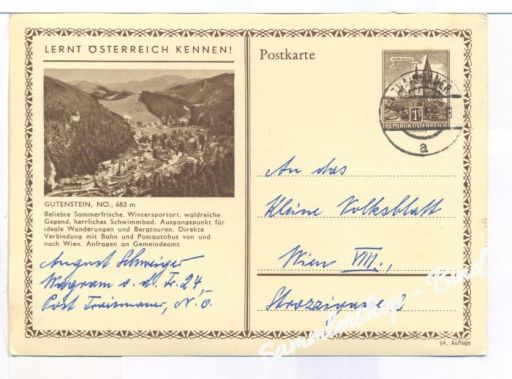 LERNT ÖSTERREICH KENNEN!
Postkarte
REPUBLIK ÖSTERREICH
a
GUTENSTEIN, NÖ., 483 m
Beliebte Sommerfrische, Wintersportort, waldreiche
Gegend, herrliches Schwimmbad. Ausgangspunkt für
ideale Wanderungen und Bergtouren. Direkte
Verbindung mit Bahn und Postautobus von und
nach Wien. Anfragen an Gemeindeamt
August Schweiger
Wagram a. d. Tr. 24,
Post Traismauer, N. Ö.
An das
Kleine Volksblatt
Wien VIII.,
Strozzigasse 8
Sammlershop - Basel
64. Auflage